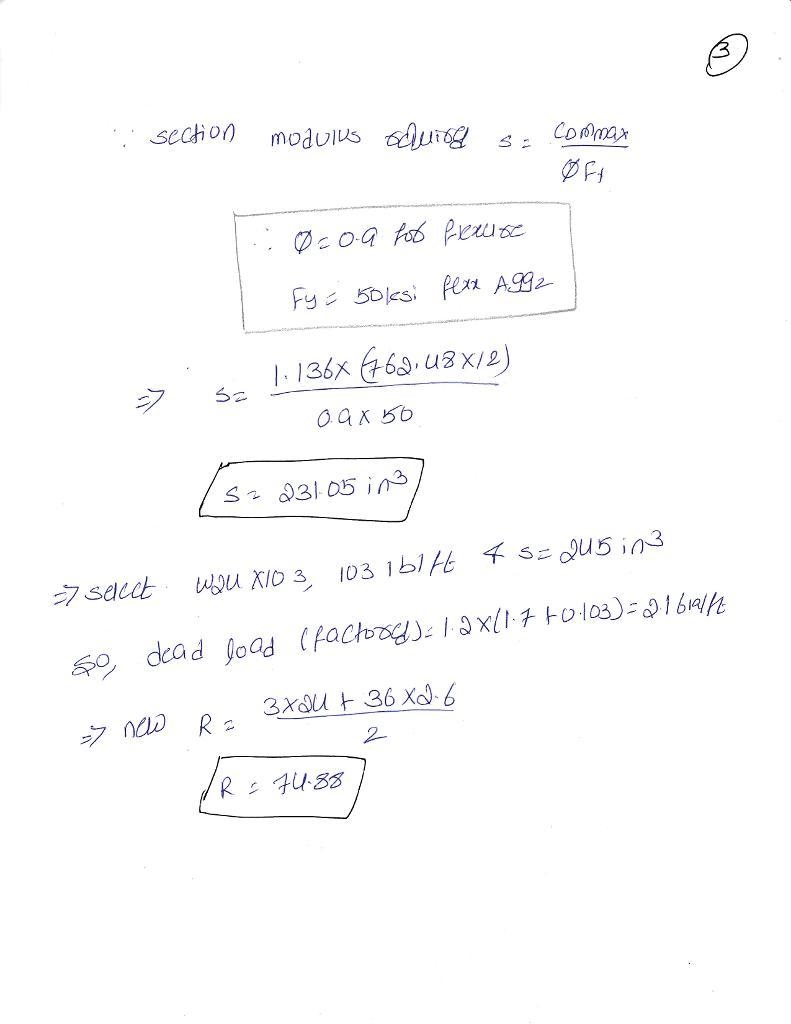 3
∴ section modulus required s = Commax
ØFy
∴ Ø = 0.9 for flexure
Fy = 50ksi A992
⇒ s = 1.136 x (762.48 x 12)
0.9 x 50
s = 231.05 in³
⇒ select W24 X 103, 103 lb/ft & s = 245 in³
so, dead load (factored) = 1.2 x (1.7 + 0.103) = 2.16
⇒ new R = 3x24 + 36 x 2.6
2
R = 74.88